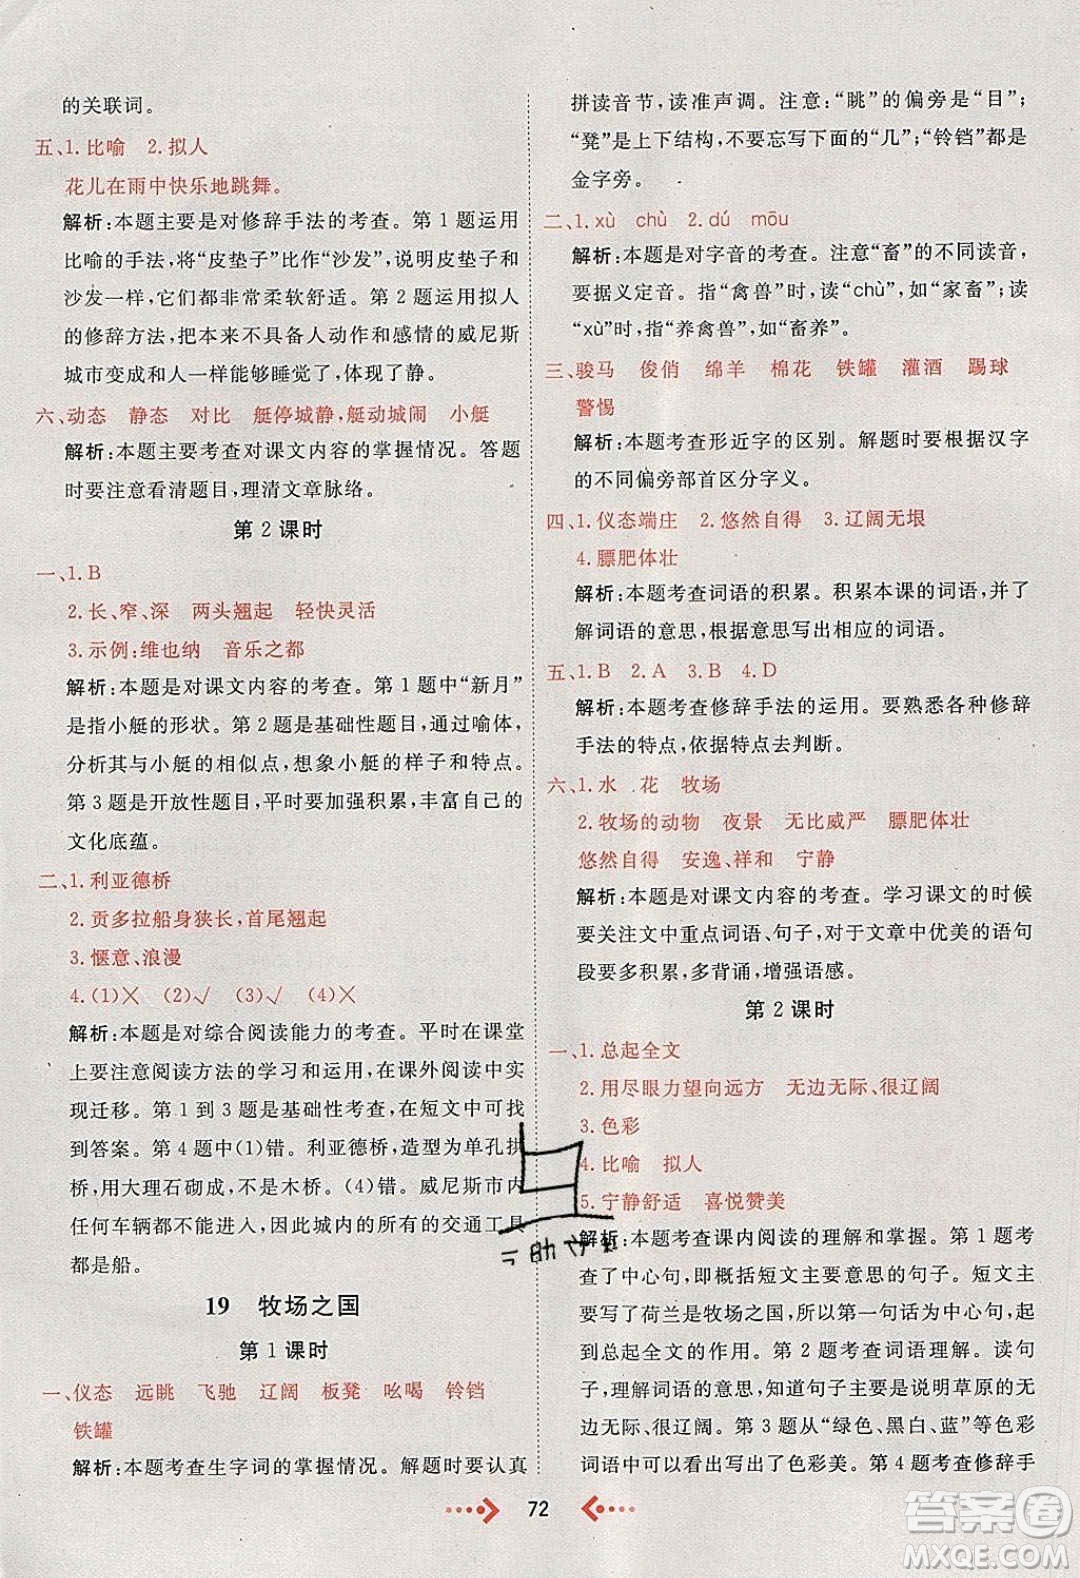 的关联词。
五、1.比喻 2.拟人
花儿在雨中快乐地跳舞。
解析:本题主要是对修辞手法的考查。第1题运用
比喻的手法,将“皮垫子”比作“沙发”,说明皮垫子和
沙发一样,它们都非常柔软舒适。第2题运用拟人
的修辞方法,把本来不具备人动作和感情的威尼斯
城市变成和人一样能够睡觉了,体现了静。
六、动态 静态 对比 艇停城静,艇动城闹 小艇
解析:本题主要考查对课文内容的掌握情况。答题
时要注意看清题目,理清文章脉络。
第2课时
一、1.B
2.长、窄、深 两头翘起 轻快灵活
3.示例:维也纳 音乐之都
解析:本题是对课文内容的考查。第1题中“新月”
是指小艇的形状。第2题是基础性题目,通过喻体,
分析其与小艇的相似点,想象小艇的样子和特点。
第3题是开放性题目,平时要加强积累,丰富自己的
文化底蕴。
二、1.利亚德桥
2.贡多拉船身狭长,首尾翘起
3.惬意、浪漫
4.(1)× (2)√ (3)√ (4)×
解析:本题是对综合阅读能力的考查。平时在课堂
上要注意阅读方法的学习和运用,在课外阅读中实
现迁移。第1到3题是基础性考查,在短文中可以找
到答案。第4题中(1)错。利亚德桥,造型为单孔拱
桥,用大理石砌成,不是木桥。(4)错。威尼斯市内
任何车辆都不能进入,因此城内的所有的交通工具
都是船。
19 牧场之国
第1课时
一、仪态 远眺 飞驰 辽阔 板凳 吆喝 铃铛
铁罐
解析:本题考查生字词的掌握情况。解题时要认真
拼读音节,读准声调。注意:“眺”的偏旁是“目”;
“凳”是上下结构,不要忘写下面的“几”;“铃铛”都是
金字旁。
二、1.xù chù 2.dú mōu
解析:本题是对字音的考查。注意“畜”的不同读音,
要据义定音。指“禽兽”时,读“chù”,如“家畜”;读
“xù”时,指“养禽兽”,如“畜养”。
三、骏马 俊俏 绵羊 棉花 铁罐 灌酒 踢球
警惕
解析:本题考查形近字的区别。解题时要根据汉字
的不同偏旁部首区分字义。
四、1.仪态端庄 2.悠然自得 3.辽阔无垠
4.膘肥体壮
解析:本题考查词语的积累。积累本课的词语,并了
解词语的意思,根据意思写出相应的词语。
五、1.B 2.A 3.B 4.D
解析:本题考查修辞手法的运用。要熟悉各种修辞
手法的特点,依据特点去判断。
六、1.水 花 牧场
2.牧场的动物 夜景 无比威严 膘肥体壮
悠然自得 安逸、祥和 宁静
解析:本题是对课文内容的考查。学习课文的时候
要关注文中重点词语、句子,对于文章中优美的语句
段要多积累,多背诵,增强语感。
第2课时
一、1.总起全文
2.用尽眼力望向远方 无边无际、很辽阔
3.色彩
4.比喻 拟人
5.宁静舒适 喜悦赞美
解析:本题考查课内阅读的理解和掌握。第1题考
查了中心句,即概括短文主要意思的句子。短文主
要写出了荷兰是牧场之国,所以第一句话为中心句,
起到总起全文的作用。第2题考查词语理解。读句
子,理解词语的意思,知道句子主要是说明草原的无
边无际、很辽阔。第3题从“绿色、黑白、蓝”等色彩
词语中可以看出写出了色彩美。第4题考查修辞手
72
答案圈
MXQE.COM